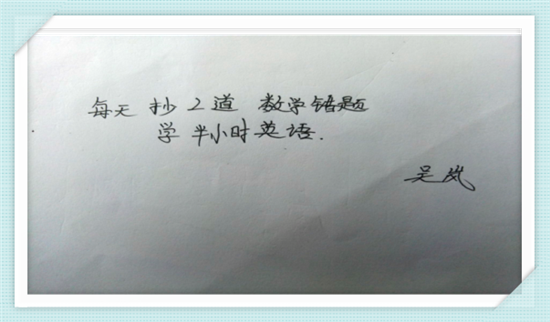 每天 抄 2 道 数学错题
学 半小时 英语.
吴岚